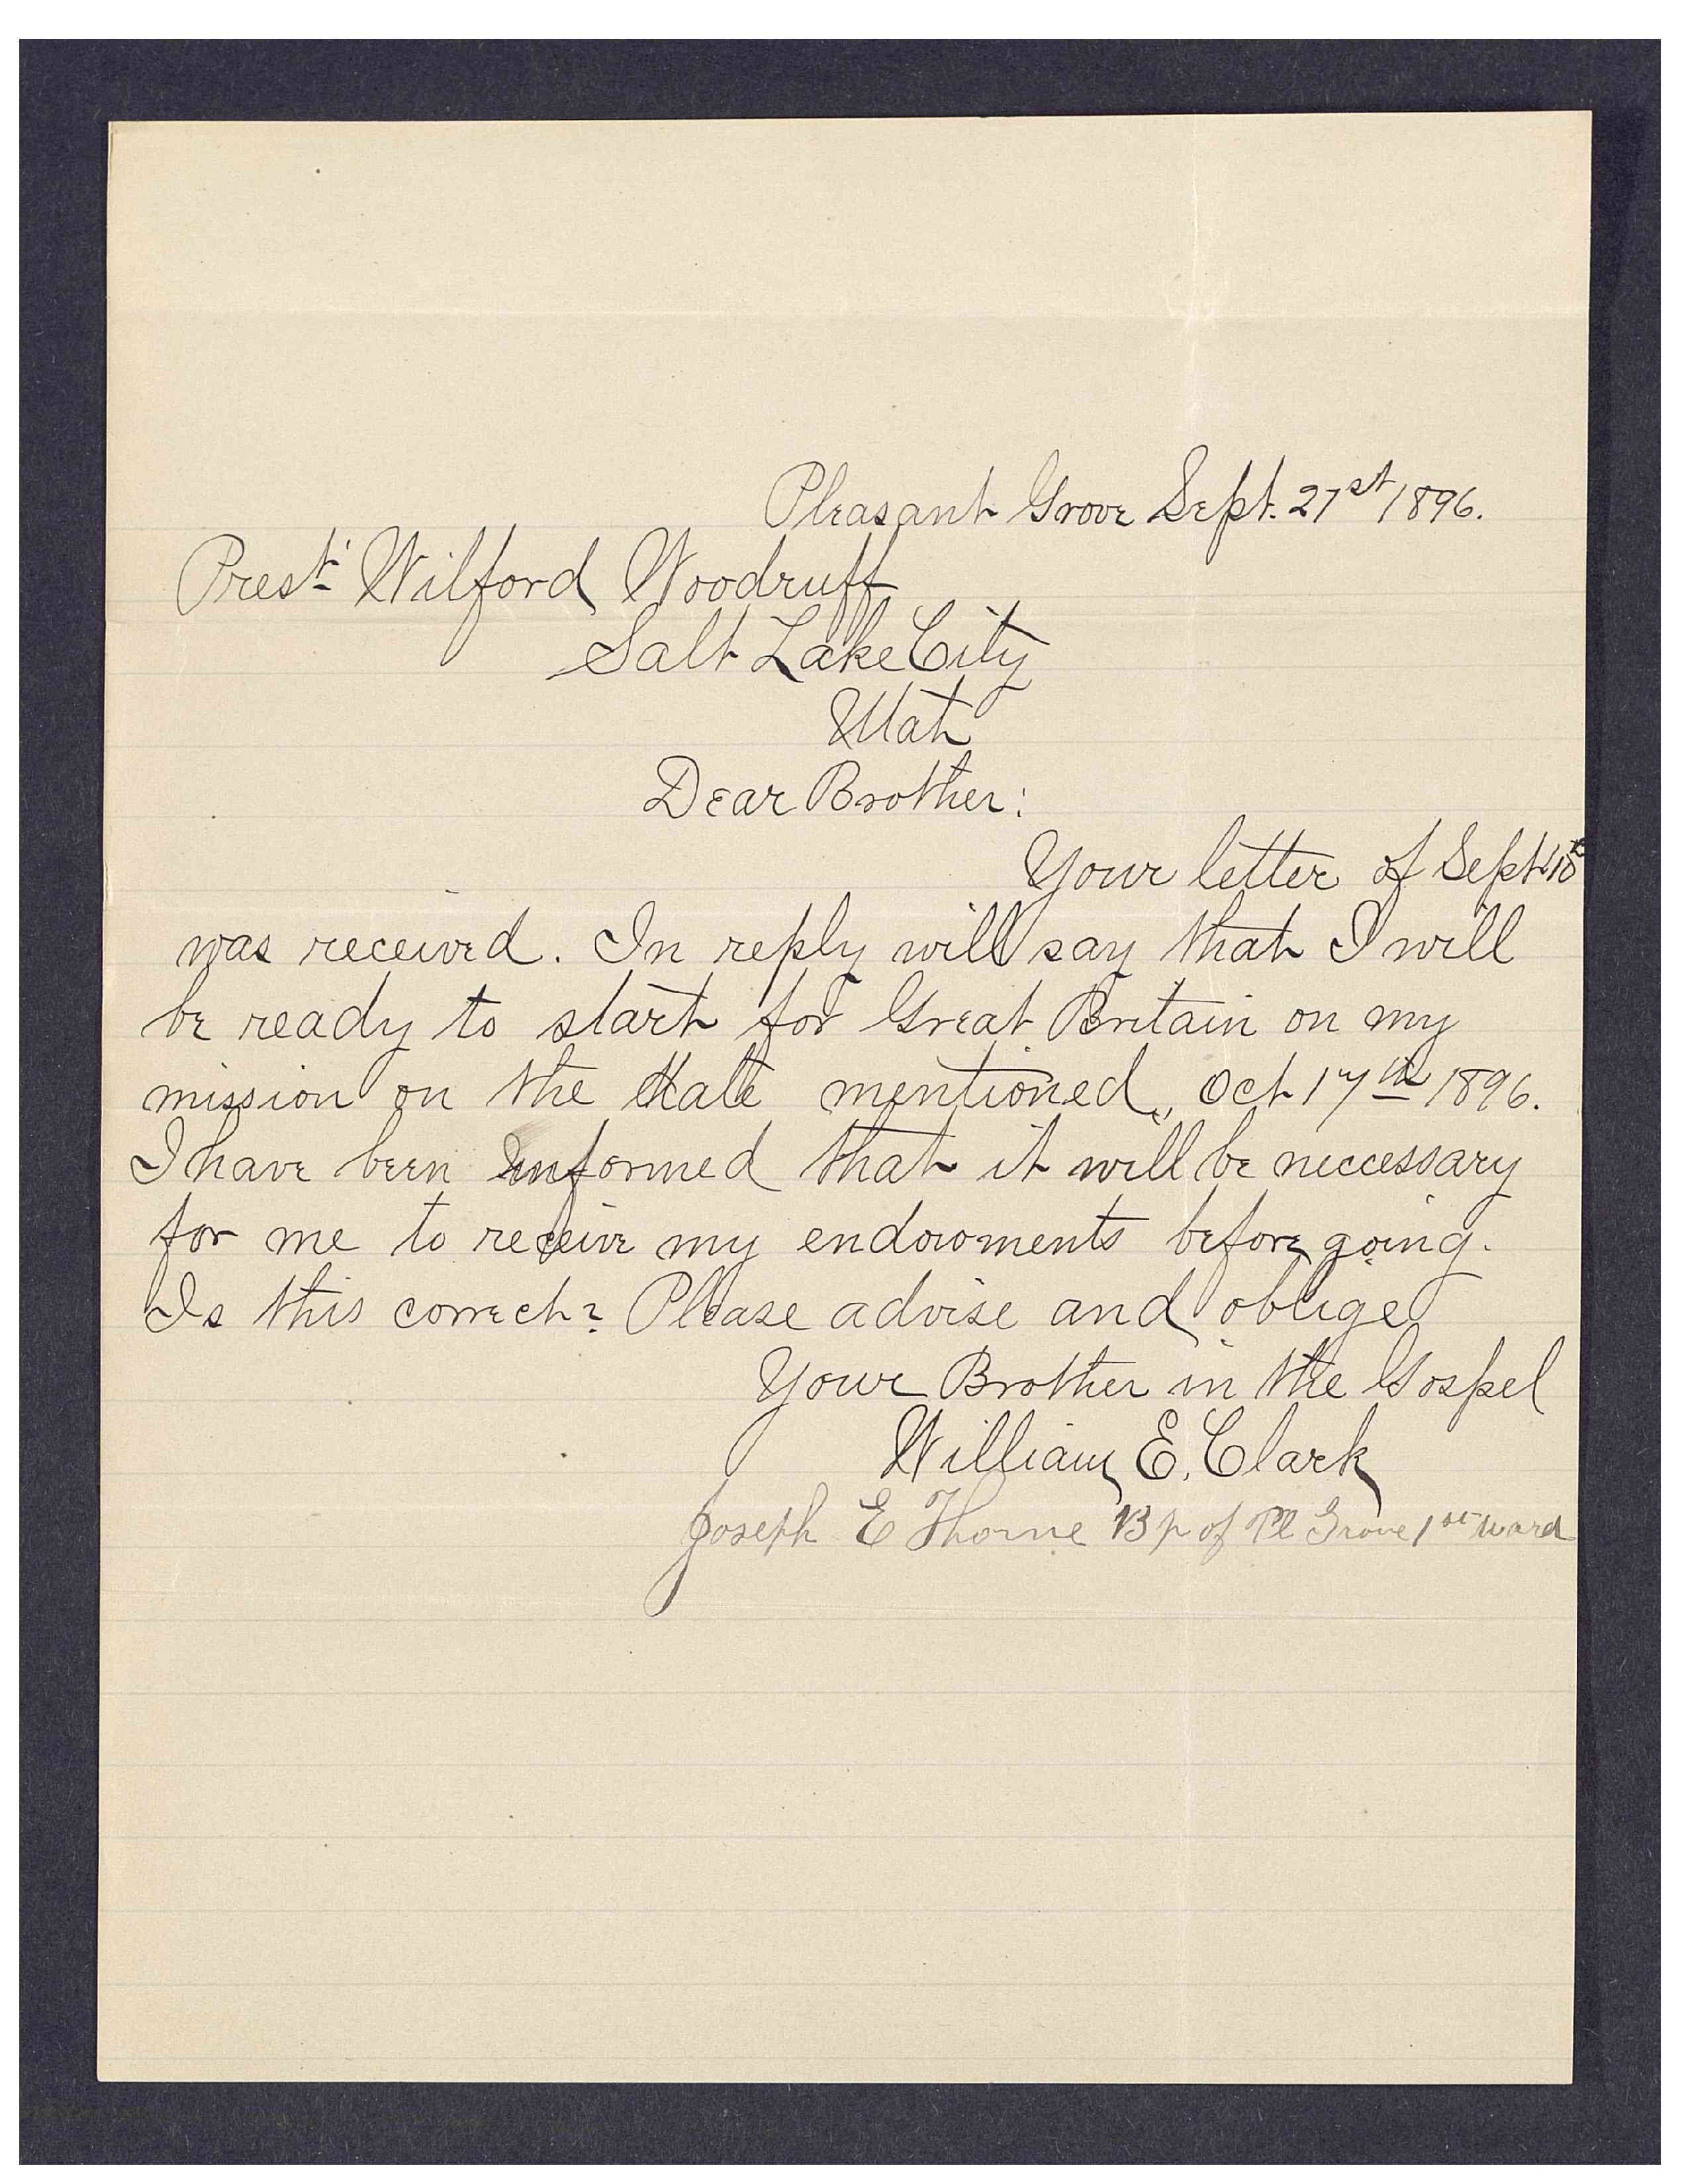 Pleasant Grove Sept. 21st 1896.
Prest. Wilford Woodruff
Salt Lake City
Utah
Dear Brother:
Your letter of Sept
was received. In reply will say that I will
be ready to start for Great Britain on my
mission on the date mentioned, Oct 17th 1896.
I have been informed that it will be neccessary
for me to receive my endowments before going.
Is this correct? Please advise and oblige
Your Brother in the Gospel
William E. Clark
Joseph E Thorne Bp of Pl Grove 1st ward